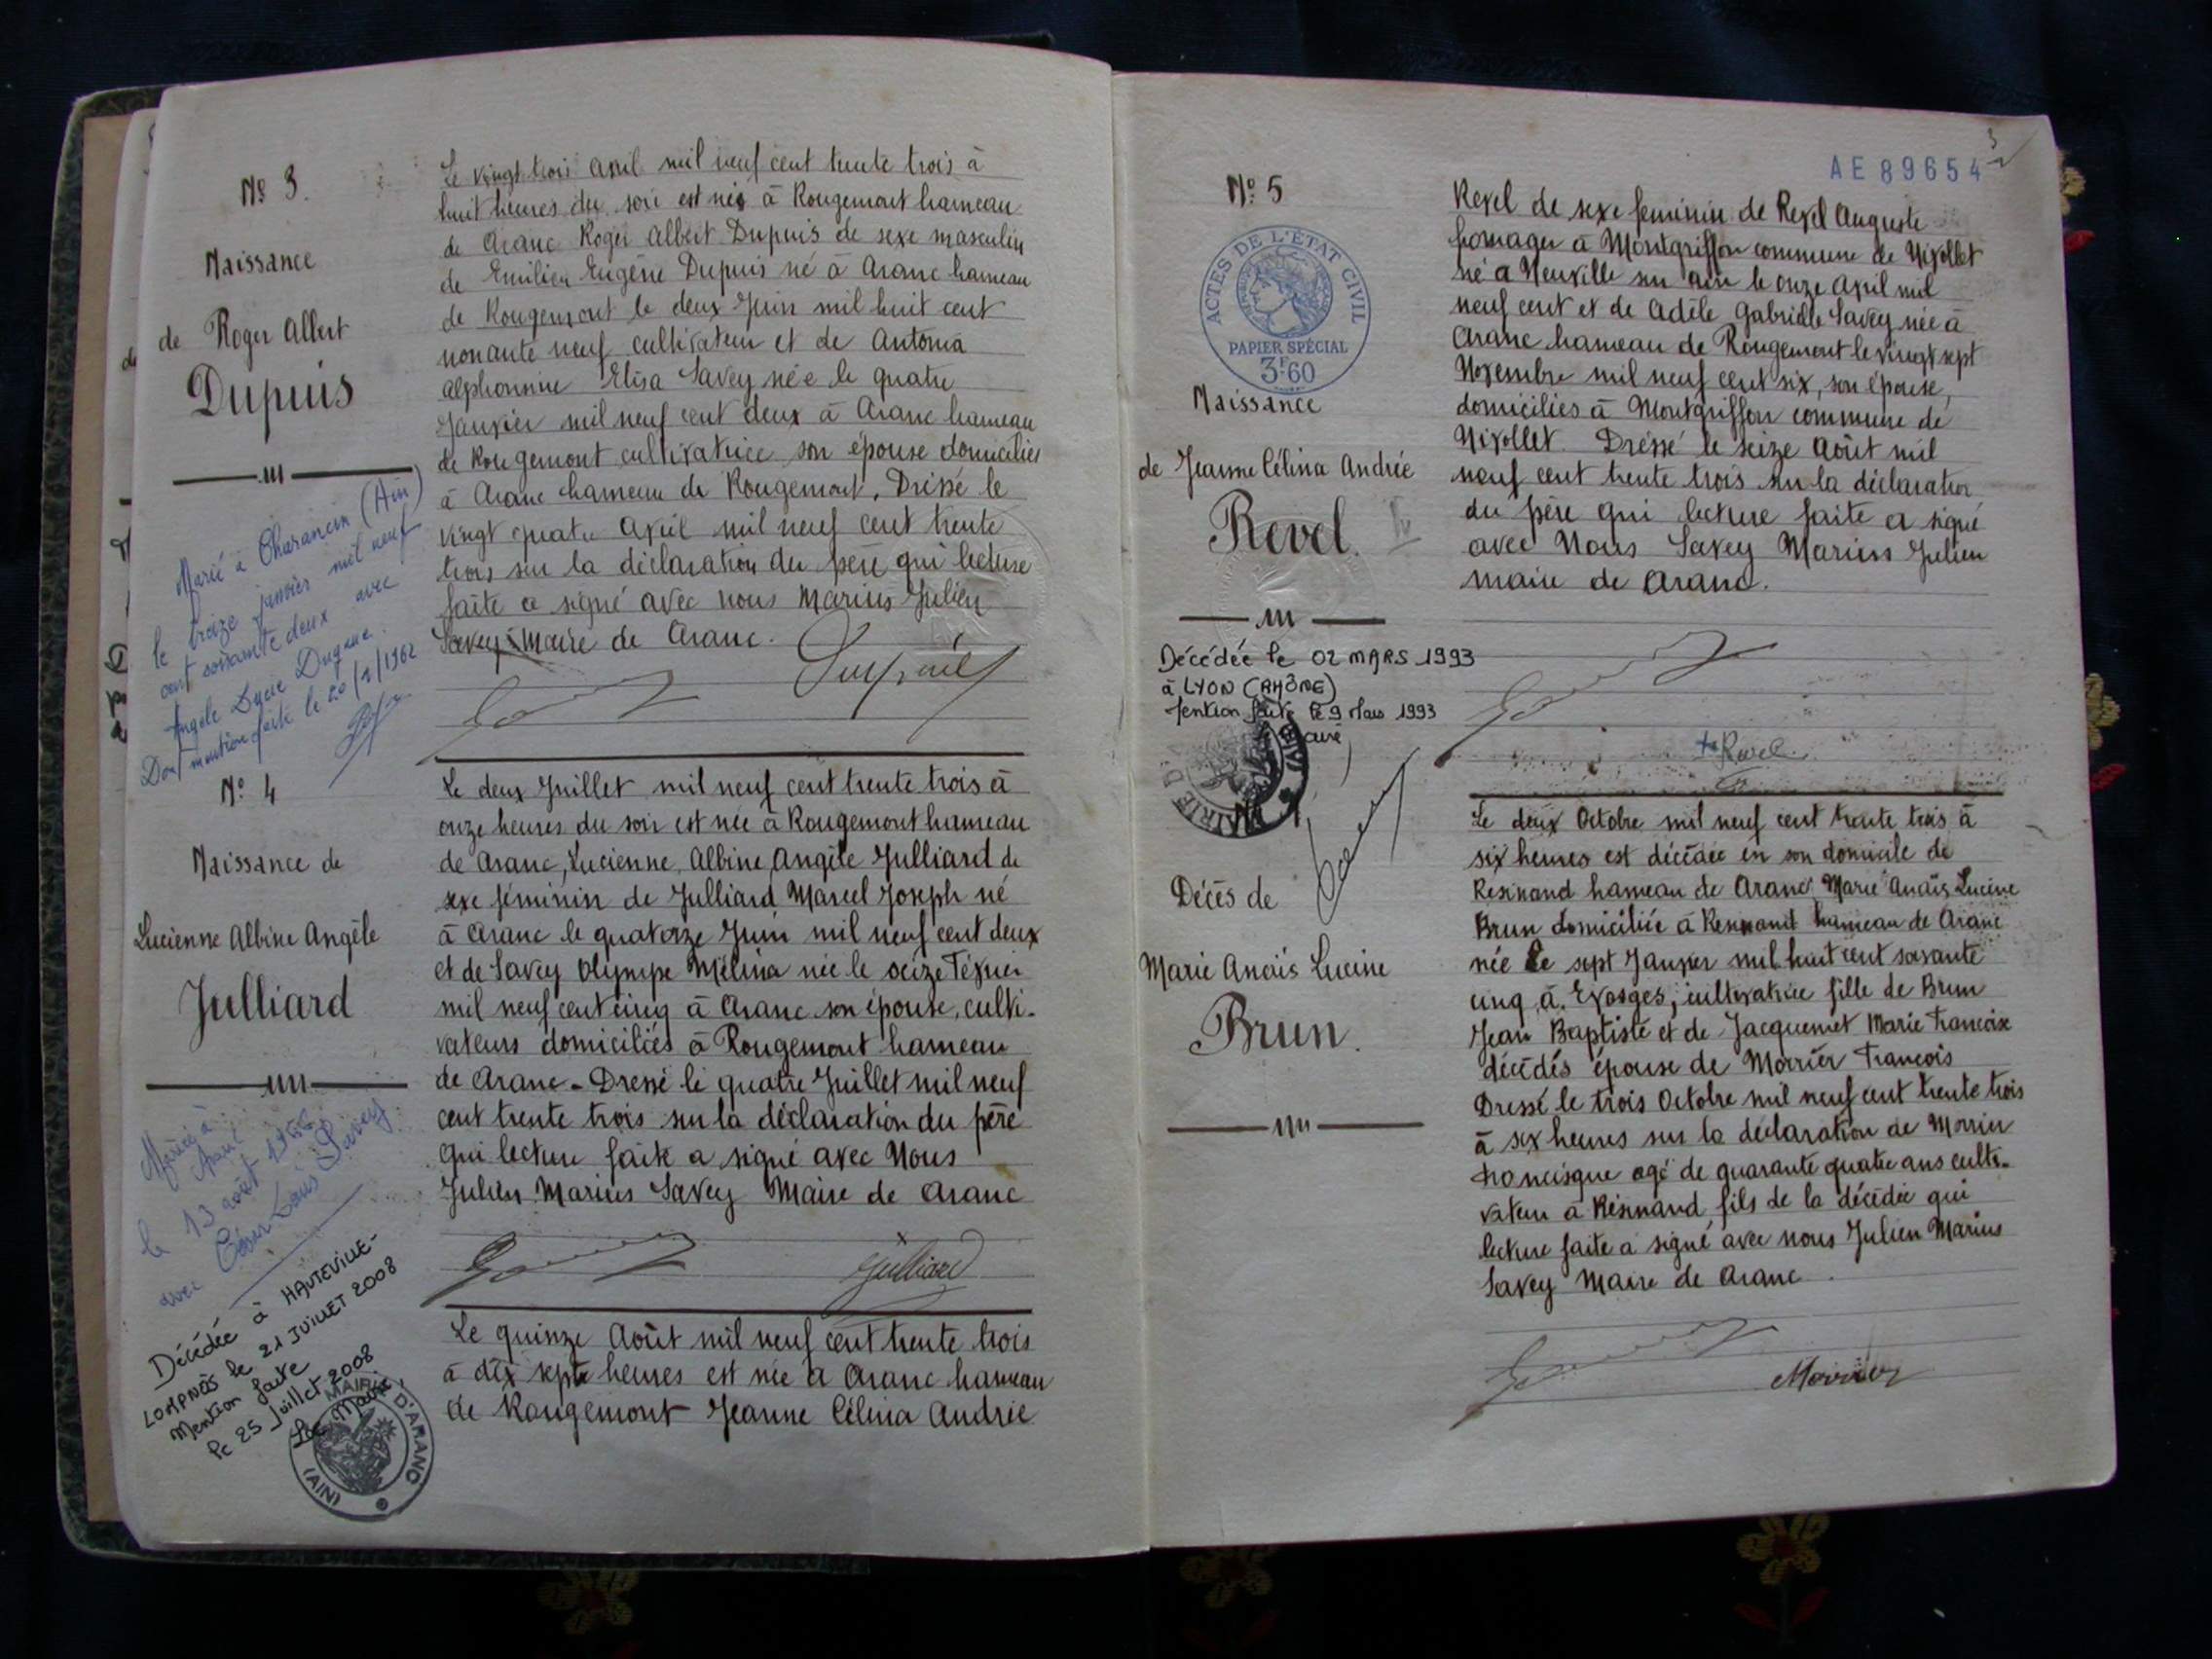 Nº 3.
Naissance
de Roger Albert
Dupuis
Marié à Charancin (Ain)
le treize janvier mil neuf
cent soixante deux avec
Angèle Lucie
Dont mention faite le 20/1/1962
Le vingt trois avril mil neuf cent trente trois à
huit heures du soir est né à Rougemont hameau
de Aranc Roger Albert Dupuis de sexe masculin
de Emilien Eugène Dupuis né à Aranc hameau
de Rougemont le deux Juin mil huit cent
nonante neuf cultivateur et de Antonia
Alphonsine Elisa Savey née le quatre
Janvier mil neuf cent deux à Aranc hameau
de Rougemont cultivatrice son épouse domiciliés
à Aranc hameau de Rougemont. Dressé le
vingt quatre Avril mil neuf cent trente
trois sur la déclaration du père qui lecture
faite a signé avec nous Marius Julien
Savey Maire de Aranc.
Dupuis
Nº 4
Naissance de
Lucienne Albine Angèle
Julliard
Mariée à
Aranc
le 13 août
avec César Louis Savey
Décédée à HAUTEVILLE-
LOMPNÈS le 21 JUILLET 2008
Mention faite
le 25 Juillet 2008
Le Maire
MAIRIE D'ARANC
(AIN)
Le deux Juillet mil neuf cent trente trois à
onze heures du soir est née à Rougemont hameau
de Aranc, Lucienne Albine Angèle Julliard de
sexe féminin de Julliard Marcel Joseph né
à Aranc le quatorze Juin mil neuf cent deux
et de Savey Olympe Mélina née le seize Février
mil neuf cent cinq à Aranc son épouse, culti-
vateurs domiciliés à Rougemont hameau
de Aranc - Dressé le quatre Juillet mil neuf
cent trente trois sur la déclaration du père
qui lecture faite a signé avec Nous
Julien Marius Savey Maire de Aranc
Julliard
Le quinze Août mil neuf cent trente trois
à dix sept heures est née à Aranc hameau
de Rougemont Jeanne Célina Andrée
3
AE 89654
Nº 5
ACTES DE L'ÉTAT CIVIL
PAPIER SPÉCIAL
3F60
Naissance
de Jeanne Célina Andrée
Revel.
Décédée le 02 MARS 1993
à LYON (RHÔNE)
Mention faite le 9 Mars 1993
Le Maire
MAIRIE D'A
Revel de sexe feminin de Revel Auguste
fromager à Montgriffon commune de Nivollet
né à Neuville sur Ain le onze Avril mil
neuf cent et de Adèle Gabrielle Savey née à
Aranc hameau de Rougemont le vingt sept
Novembre mil neuf cent six, son épouse,
domiciliés à Montgriffon commune de
Nivollet. Dréssé le seize Août mil
neuf cent trente trois sur la déclaration
du père qui lecture faite a signé
avec Nous Savey Marius Julien
maire de Aranc.
Revel
Décès de
Marie Anaïs Lucine
Brun.
Le deux Octobre mil neuf cent trente trois à
six heures est décédée en son domicile de
Résinand hameau de Aranc Marie Anaïs Lucine
Brun domiciliée à Résinand hameau de Aranc
née le sept Janvier mil huit cent soixante
cinq à Evosges, cultivatrice fille de Brun
Jean Baptiste et de Jacquemet Marie Françoise
décédés épouse de Morrier François
Dressé le trois Octobre mil neuf cent trente trois
à six heures sur la déclaration de Morrier
Francisque agé de quarante quatre ans culti-
vateur à Résinand fils de la décédée qui
lecture faite a signé avec nous Julien Marius
Savey Maire de Aranc.
Morrier